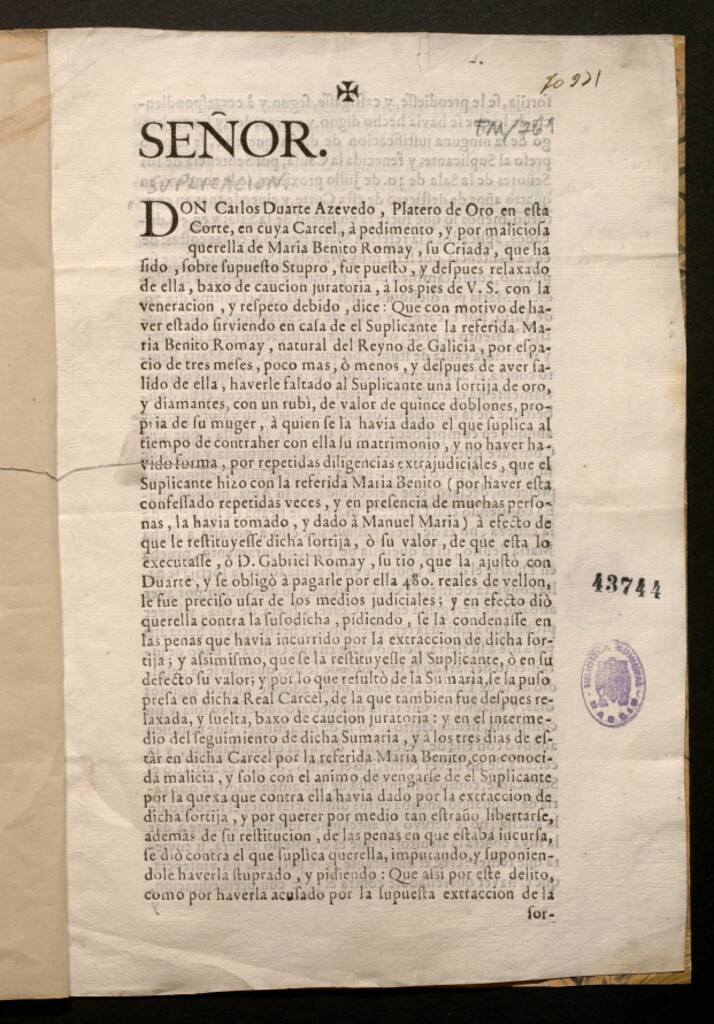 70931
✠
SEÑOR.
FM/769
SUPLICACION.
DON Carlos Duarte Azevedo, Platero de Oro en esta
Corte, en cuya Carcel, à pedimento, y por maliciosa
querella de Maria Benito Romay, su Criada, que ha
sido, sobre supuesto Stupro, fue puesto, y despues relaxado
de ella, baxo de caucion juratoria, à los pies de V. S. con la
veneracion, y respeto debido, dice: Que con motivo de ha-
ver estado sirviendo en casa de el Suplicante la referida Ma-
ria Benito Romay, natural del Reyno de Galicia, por espa-
cio de tres meses, poco mas, ò menos, y despues de aver sa-
lido de ella, haverle faltado al Suplicante una sortija de oro,
y diamantes, con un rubì, de valor de quince doblones, pro-
pria de su muger, à quien se la havia dado el que suplica al
tiempo de contraher con ella su matrimonio, y no haver ha-
vido forma, por repetidas diligencias extrajudiciales, que el
Suplicante hizo con la referida Maria Benito (por haver esta
confessado repetidas veces, y en presencia de muchas perso-
nas, la havia tomado, y dado à Manuel Maria) à efecto de
que le restituyesse dicha sortija, ò su valor, de que esta lo
executasse, ò D. Gabriel Romay, su tio, que la ajustò con
Duarte, y se obligò à pagarle por ella 480. reales de vellon,
le fue preciso usar de los medios judiciales; y en efecto diò
querella contra la susodicha, pidiendo, se la condenasse en
las penas que havia incurrido por la extraccion de dicha sor-
tija; y assimismo, que se la restituyesse al Suplicante, ò en su
defecto su valor; y por lo que resultò de la Sumaria, se la puso
presa en dicha Real Carcel, de la que tambien fue despues re-
laxada, y suelta, baxo de caucion juratoria: y en el interme-
dio del seguimiento de dicha Sumaria, y à los tres dias de es-
tàr en dicha Carcel por la referida Maria Benito, con conoci-
da malicia, y solo con el animo de vengarse de el Suplicante
por la quexa que contra ella havia dado por la extraccion de
dicha sortija, y por querer por medio tan estraño libertarse,
ademàs de su restitucion, de las penas en que estaba incursa,
se diò contra el que suplica querella, imputando, y suponien-
dole haverla stuprado, y pidiendo: Que assi por este delito,
como por haverla acusado por la supuesta extraccion de la
sor-
43744
BIBLIOTECA MUNICIPAL
MADRID